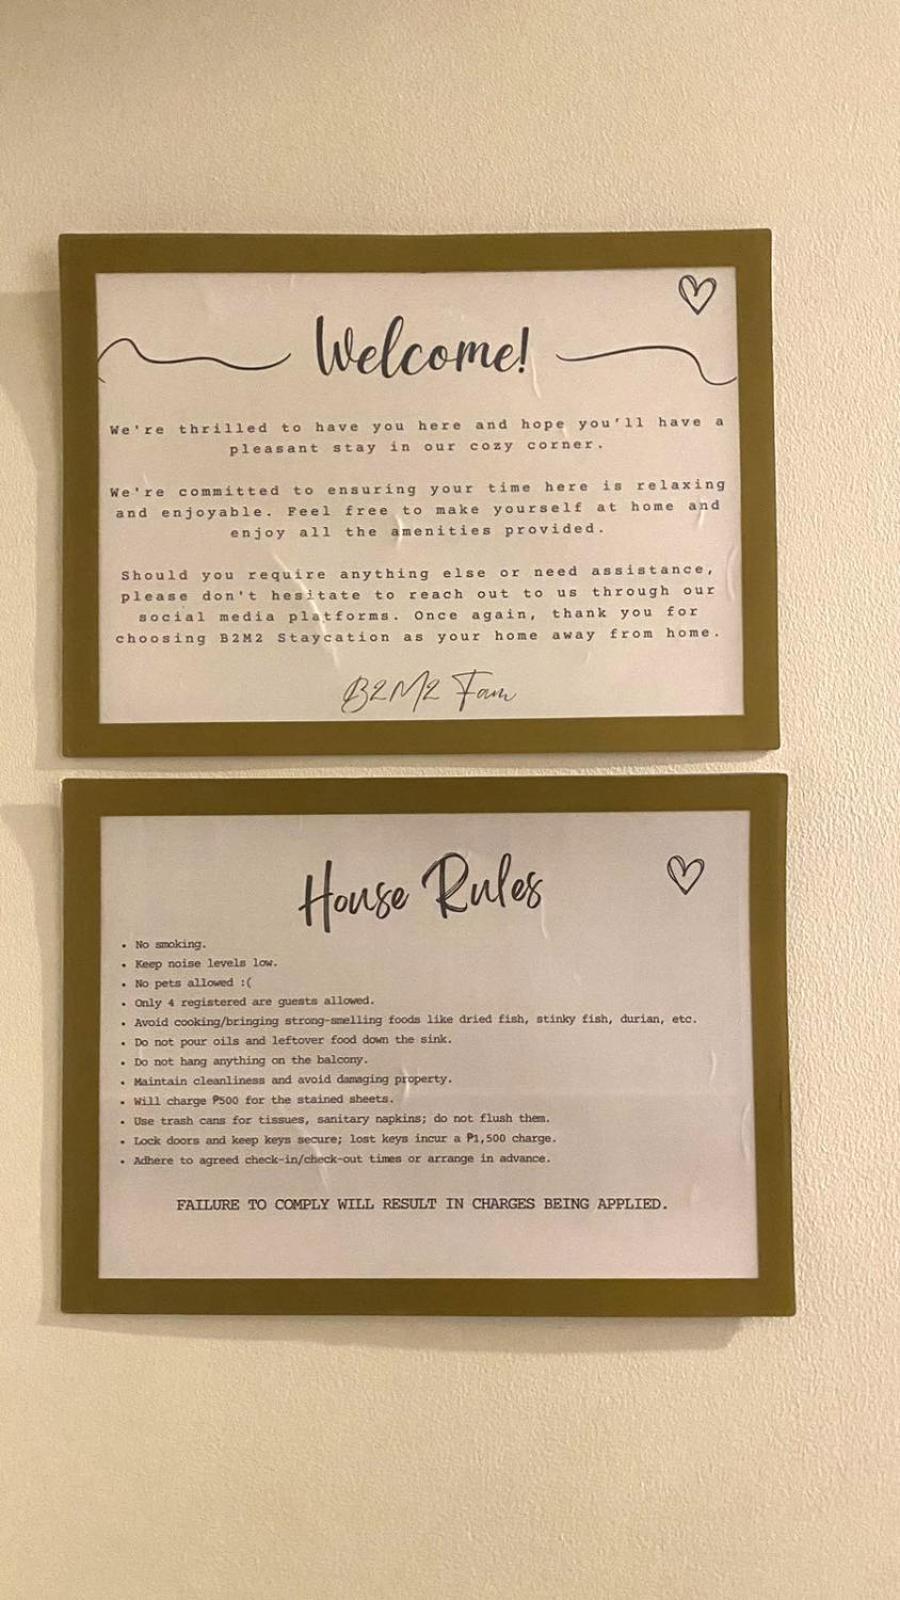 Welcome!
We're thrilled to have you here and hope you'll have a
pleasant stay in our cozy corner.
We're committed to ensuring your time here is relaxing
and enjoyable. Feel free to make yourself at home and
enjoy all the amenities provided.
Should you require anything else or need assistance,
please don't hesitate to reach out to us through our
social media platforms. Once again, thank you for
choosing B2M2 Staycation as your home away from home.
B2M2 Fam
House Rules
• No smoking.
• Keep noise levels low.
• No pets allowed :(
• Only 4 registered are guests allowed.
• Avoid cooking/bringing strong-smelling foods like dried fish, stinky fish, durian, etc.
• Do not pour oils and leftover food down the sink.
• Do not hang anything on the balcony.
• Maintain cleanliness and avoid damaging property.
• Will charge ₱500 for the stained sheets.
• Use trash cans for tissues, sanitary napkins; do not flush them.
• Lock doors and keep keys secure; lost keys incur a ₱1,500 charge.
• Adhere to agreed check-in/check-out times or arrange in advance.
FAILURE TO COMPLY WILL RESULT IN CHARGES BEING APPLIED.